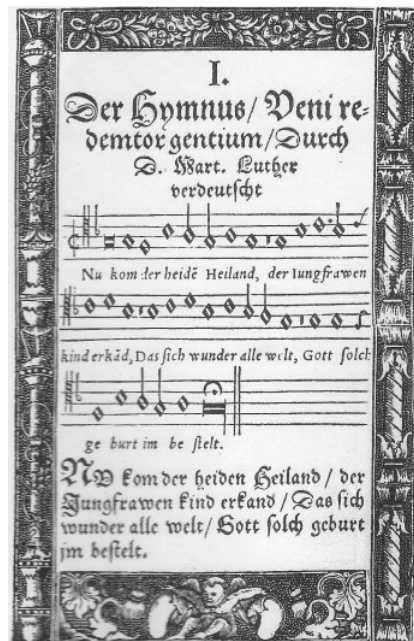 I.
Der Hymnus/ Veni re-
demtor gentium/Durch
D. Mart. Luther
verdeutscht
Nu kom der heidē Heiland, der Iungfrawen
kind erkād, Das sich wunder alle welt, Gott solch
ge burt im be stelt.
NV kom der heiden Heiland/ der
Jungfrawen kind erkand/ Das sich
wunder alle welt/ Gott solch geburt
jm bestelt.